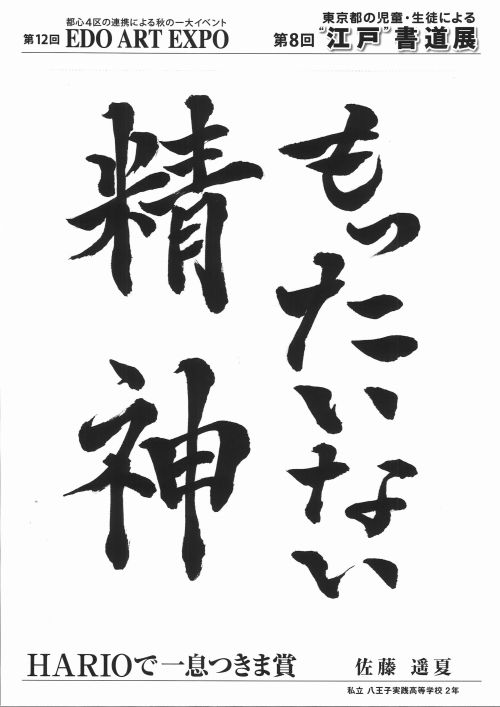 都心4区の連携による秋の一大イベント
第12回 EDO ART EXPO
東京都の児童・生徒による
第8回 "江戸"書道展
もったいない
精神
HARIOで一息つきま賞
佐藤 遥夏
私立 八王子実践高等学校 2年